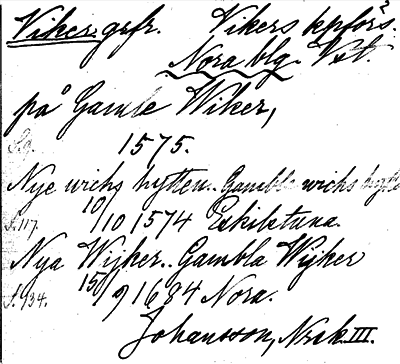 Viker. gsfr. Vikers kpförs.
Nora blg. Vstl.
på Gamle Wiker,
1575.
Nye wichs hytten. Gambla wichs hytte
S. 117. 10/10 1574 Eskilstuna.
Nya Wijker.. Gambla Wijker
S. 134. 15/9 1684 Nora.
Johansson, Nrsk. III.